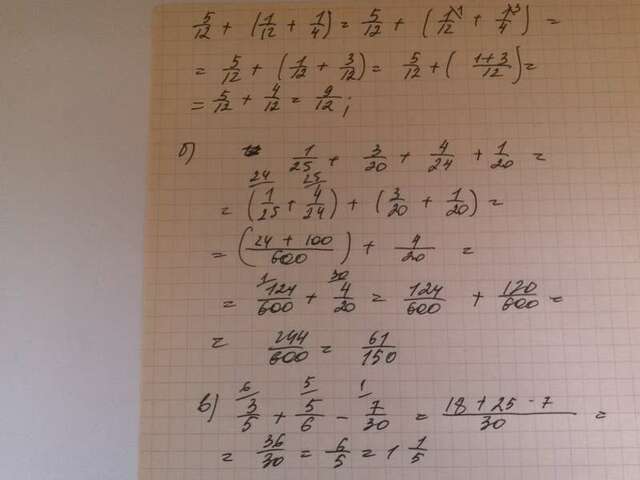 5/12 + (1/12 + 1/4) = 5/12 + (1/12 \1 + 1/4 \3) =
= 5/12 + (1/12 + 3/12) = 5/12 + (1+3/12) =
= 5/12 + 4/12 = 9/12;
б) 1/25 + 3/20 + 4/24 + 1/20 =
24/ 25/
= (1/25 + 4/24) + (3/20 + 1/20) =
= (24 + 100/600) + 4/20 =
1/ 30/
= 124/600 + 4/20 = 124/600 + 120/600 =
= 244/600 = 61/150
6/ 5/ 1/
в) 3/5 + 5/6 - 7/30 = 18 + 25 - 7/30 =
= 36/30 = 6/5 = 1 1/5